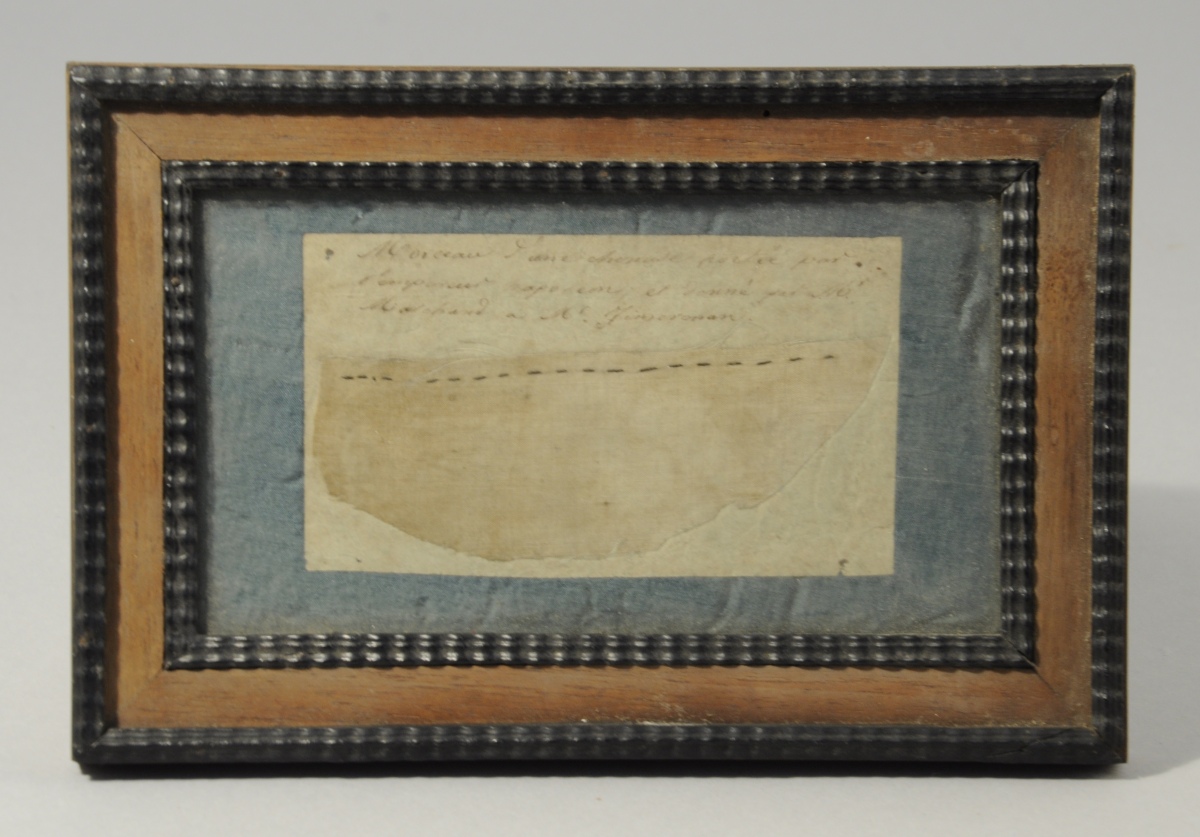 Morceau d'une chemise portée par
l'empereur napoleon, et donné par Mr
Marchand a Mr